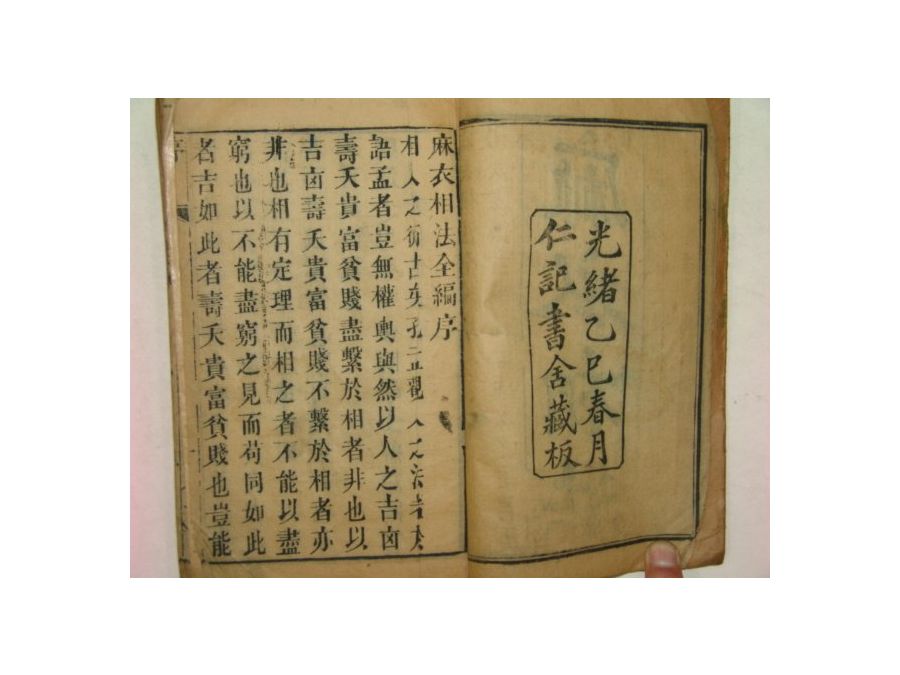 光緒乙巳春月
仁記書舍藏板
麻衣相法全編序
相人之術古矣孔孟觀人之法著夫
語孟者豈無權輿與然以人之吉凶
壽夭貴富貧賤盡繫於相者非也以
吉凶壽夭貴富貧賤不繫於相者亦
非也相有定理而相之者不能以盡
窮也以不能盡窮之見而苟同如此
者吉如此者壽夭貴富貧賤也豈能
序